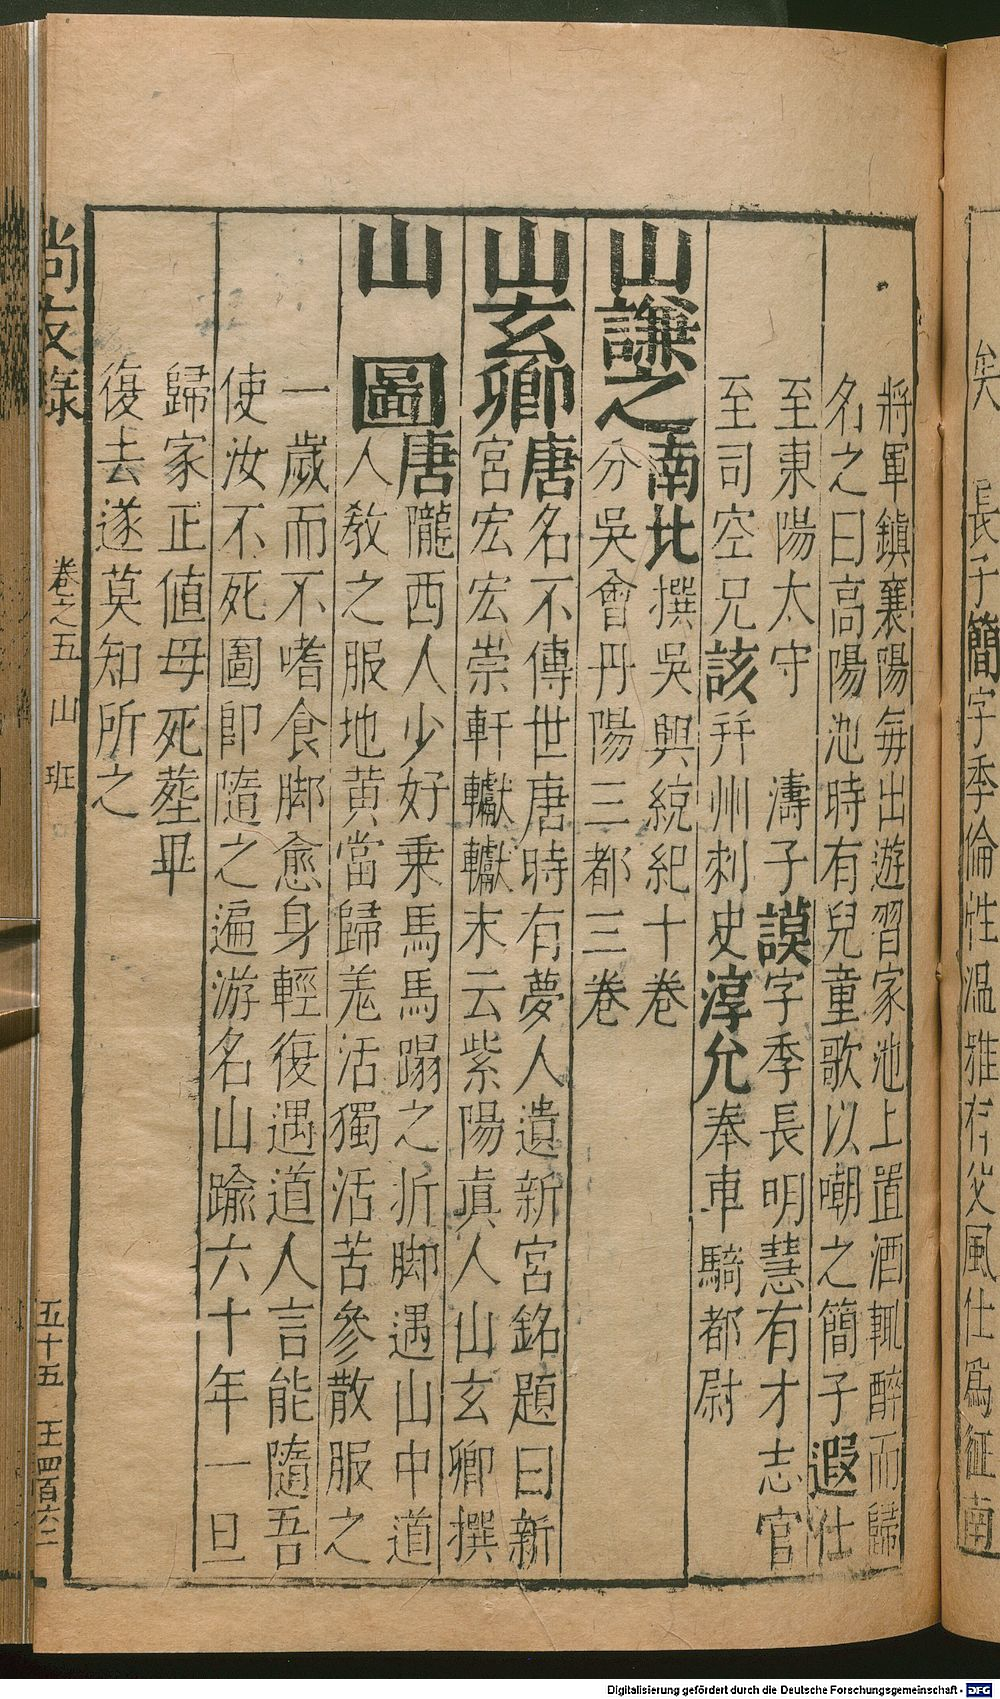 矣 長子簡字季倫性溫雅有父風仕爲征南
將軍鎮襄陽每出遊習家池上置酒輒醉而歸
名之曰高陽池時有兒童歌以嘲之簡子遐仕
至東陽太守 濤子謨字季長明慧有才志官
至司空兄該并州刺史淳允奉車騎都尉
山謙之
南北撰吳興統紀十卷
分吳會丹陽三都三卷
山玄卿
唐名不傳世唐時有夢人遺新宮銘題曰新
宮宏宏崇軒轍轍末云紫陽眞人山玄卿撰
山圖
唐隴西人少好乗馬馬蹋之折脚遇山中道
人敎之服地黄當歸羗活獨活苦參散服之
一歲而不嗜食脚愈身輕復遇道人言能隨吾
使汝不死圖卽隨之遍游名山踰六十年一旦
歸家正値母死塟畢
復去遂莫知所之
尚友錄 卷之五 山 班 五十五 王四百六二
Digitalisierung gefördert durch die Deutsche Forschungsgemeinschaft - DFG